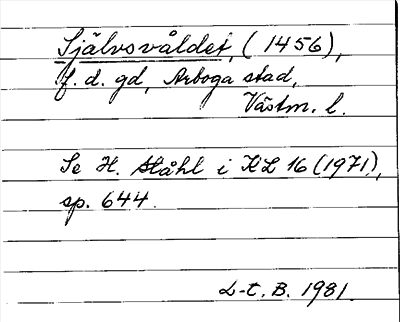 Självsvåldet, (1456),
f. d. gd, Arboga stad,
Västm. l.
Se H. Ståhl i KL 16 (1971),
sp. 644.
L-t, B. 1981.